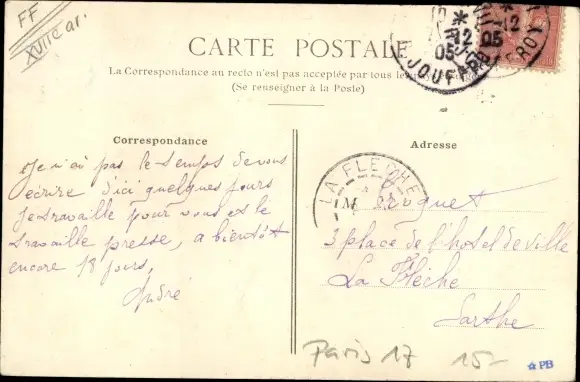 FF
XVII(e ar.
CARTE POSTALE
La Correspondance au recto n'est pas acceptée par tous les
(Se renseigner à la Poste)
12
05
JOUFFROY
12
05
ROY
Correspondance
Je n'ai pas le temps de vous
écrire d'ici quelques jours
Je travaille pour vous et le
travaille presse, a bientôt
encore 18 jours,
André
Adresse
LA FLECHE
M croquet
3 place de l'hotel de ville
La Flèche
Sarthe
Paris 17 15-
PB